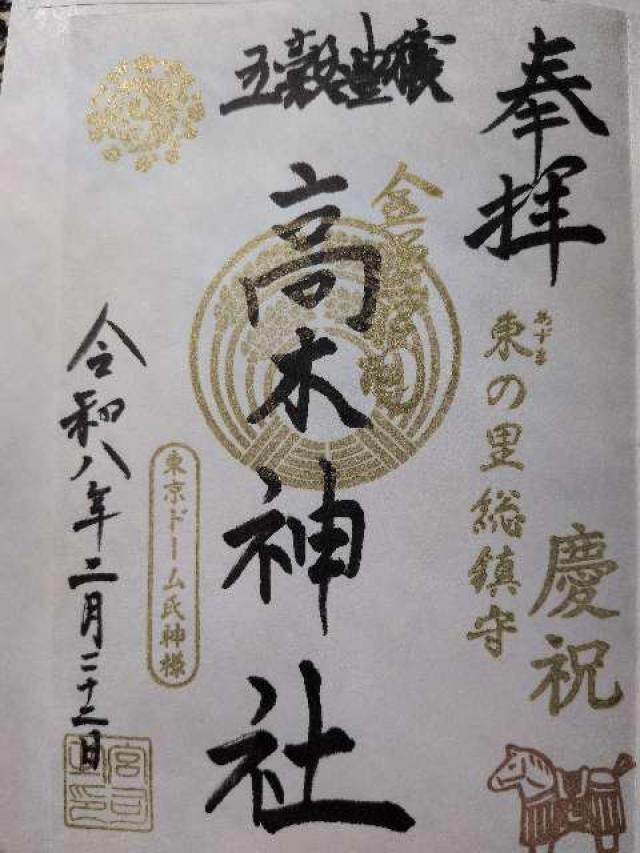 奉拝
慶祝
あずま
東の里総鎮守
五穀豊穣
高木神社
東京ドーム氏神様
令和八年二月二十二日
宮司